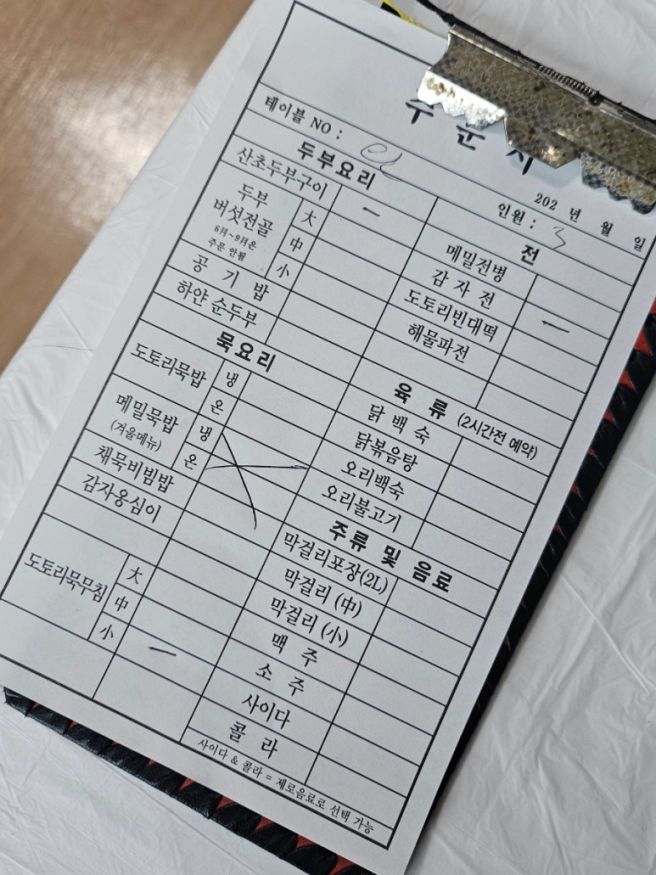 주문서
테이블 NO :
202 년 월 일
인원 : 3
두부요리
산초두부구이 ー
두부
버섯전골
6月~9月은
주문 안됨
大
中
小
공 기 밥
하얀 순두부
묵요리
도토리묵밥
냉
온
메밀묵밥
(겨울메뉴)
냉
온
채묵비빔밥
감자옹심이
도토리묵무침
大
中
小 ー
전
메밀전병
감 자 전
도토리빈대떡 ー
해물파전
육 류 (2시간전 예약)
닭 백 숙
닭볶음탕
오리백숙
오리불고기
주류 및 음료
막걸리포장(2L)
막걸리 (中)
막걸리 (小)
맥 주
소 주
사이다
콜 라
사이다 & 콜라 = 제로음료로 선택 가능